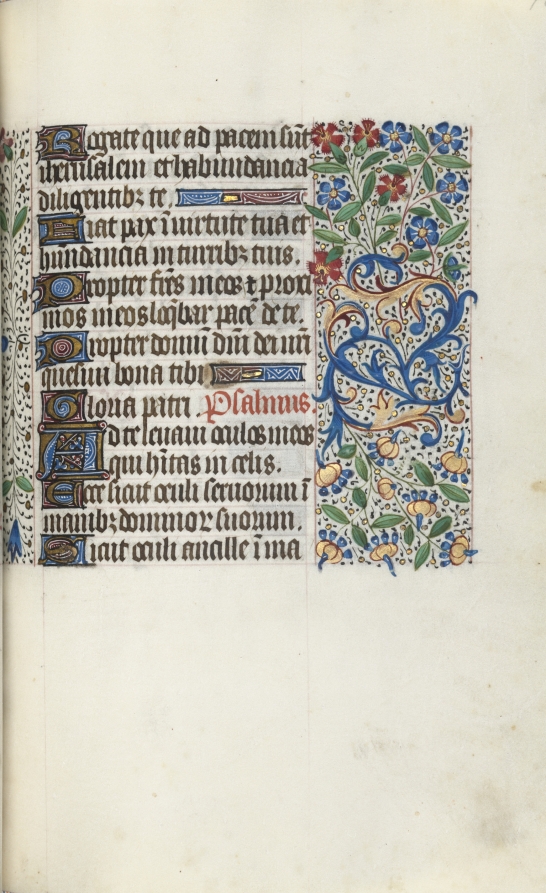 Rogate que ad pacem sūt
iherusalem et habundancia
diligentibꝫ te.
Fiat pax ī uirtute tua et
bundancia in turribꝫ tuis.
Propter frēs meos ⁊ proxi
mos meos loq̄bar pacē de te.
Propter domū dn̄i dei nr̄i
quesiui bona tibi
Gloria patri. Psalmus.
Ad te leuaui oculos meos
qui hītas in celis.
Ecce sicut oculi seruorum ī
manibꝫ dominoꝝ suorum.
Sicut oculi ancille ī ma